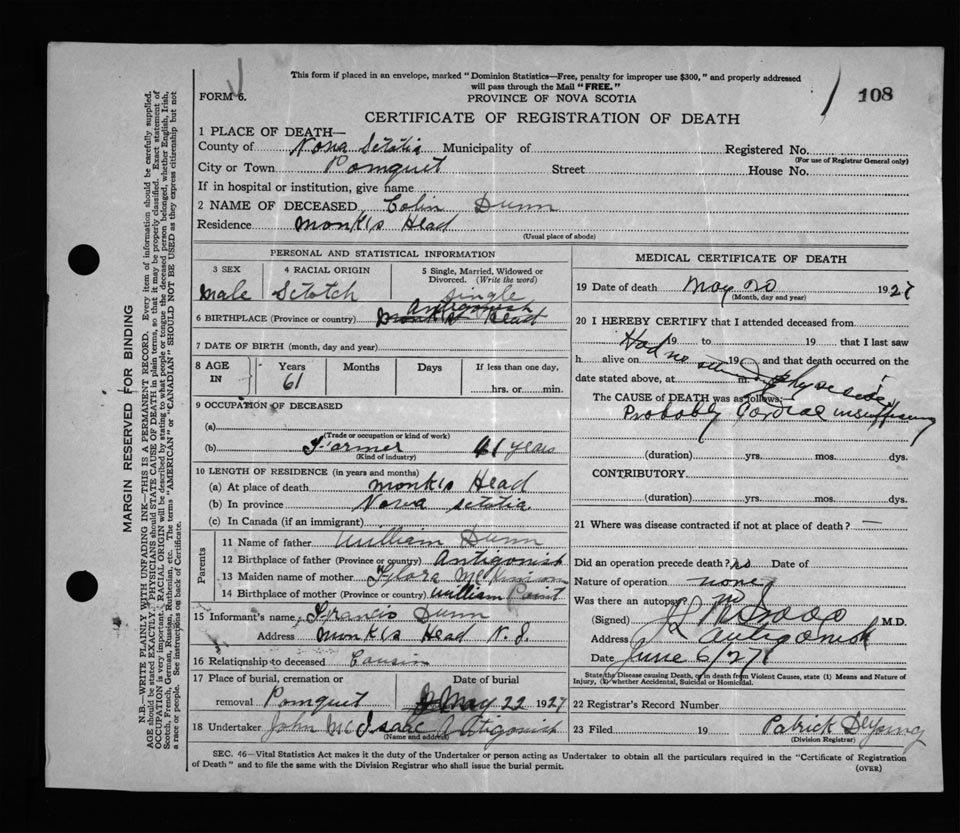 This form if placed in an envelope, marked "Dominion Statistics—Free, penalty for improper use $300," and properly addressed
will pass through the Mail "FREE."
FORM 6.
PROVINCE OF NOVA SCOTIA
108
CERTIFICATE OF REGISTRATION OF DEATH
1 PLACE OF DEATH—
County of Nova Scotatia Municipality of Registered No.
(For use of Registrar General only)
City or Town Pomquet Street House No.
If in hospital or institution, give name
2 NAME OF DECEASED Colin Dunn
Residence Monk's Head
(Usual place of abode)
PERSONAL AND STATISTICAL INFORMATION
3 SEX 4 RACIAL ORIGIN 5 Single, Married, Widowed or
Divorced. (Write the word)
Male Sctotch single
Antigonish
6 BIRTHPLACE (Province or country) Monk's Head
7 DATE OF BIRTH (month, day and year)
8 AGE IN Years Months Days If less than one day,
61 hrs. or min.
9 OCCUPATION OF DECEASED
(a)
(Trade or occupation or kind of work)
(b) Farmer 61 years
(Kind of industry)
10 LENGTH OF RESIDENCE (in years and months)
(a) At place of death Monk's Head
(b) In province Nova Sctotia
(c) In Canada (if an immigrant)
Parents
11 Name of father William Dunn
12 Birthplace of father (Province or country) Antigonish
13 Maiden name of mother Flora McKinnon
14 Birthplace of mother (Province or country) William Point
15 Informant's name Francis Dunn
Address Monk's Head N. S.
16 Relationship to deceased Cousin
17 Place of burial, cremation or Date of burial
removal Pomquet May 22 1927
18 Undertaker John McIsaac Antigonish
(Name and address)
MEDICAL CERTIFICATE OF DEATH
19 Date of death May 20 1927
(Month, day and year)
20 I HEREBY CERTIFY that I attended deceased from
19 to 19 that I last saw
h alive on 19 and that death occurred on the
date stated above, at m.
Had no attending physician
The CAUSE of DEATH was as follows:
Probably Cardial insufficiency
(duration) yrs. mos. dys.
CONTRIBUTORY
(duration) yrs. mos. dys.
21 Where was disease contracted if not at place of death? —
Did an operation precede death? no Date of
Nature of operation none
Was there an autopsy no
(Signed) M.D.
Address Antigonish
Date June 6/27
State the Disease causing Death, or in death from Violent Causes, state (1) Means and Nature of
Injury, (2) whether Accidental, Suicidal or Homicidal.
22 Registrar's Record Number
23 Filed 19 Patrick DeYoung
(Division Registrar)
SEC. 46—Vital Statistics Act makes it the duty of the Undertaker or person acting as Undertaker to obtain all the particulars required in the "Certificate of Registration
of Death" and to file the same with the Division Registrar who shall issue the burial permit.
(OVER)
MARGIN RESERVED FOR BINDING
N.B.—WRITE PLAINLY WITH UNFADING INK—THIS IS A PERMANENT RECORD. Every item of information should be carefully supplied.
AGE should be stated EXACTLY. PHYSICIANS should STATE CAUSE OF DEATH in plain terms, so that it may be properly classified. Exact statement of
OCCUPATION is very important. RACIAL ORIGIN will be described by stating to what people or tongue the deceased person belonged, whether English, Irish,
Scotch, French, German, Russian, Ruthenian, etc. The terms "AMERICAN" or "CANADIAN" SHOULD NOT BE USED as they express citizenship but not
a race or people. See instructions on back of Certificate.